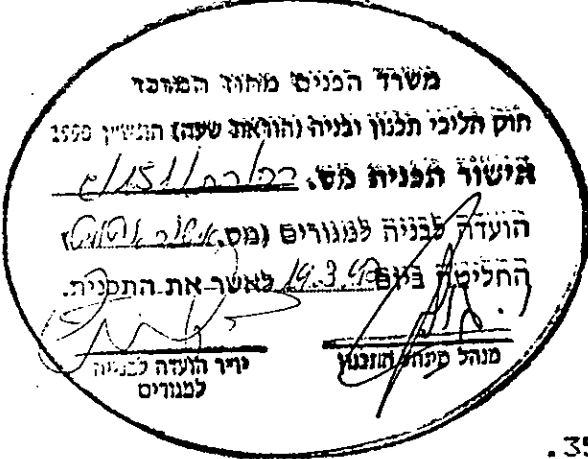 משרד הפנים מחוז המרכז
חוק הליכי תכנון ובניה (הוראת שעה) התש״ן 1990
אישור תכנית מס.
הועדה לבניה למגורים (מס.
החליטה ביום 19.3.92 לאשר את התכנית.
מנהל מינהל התכנון
יו״ר הועדה לבניה
למגורים
.35